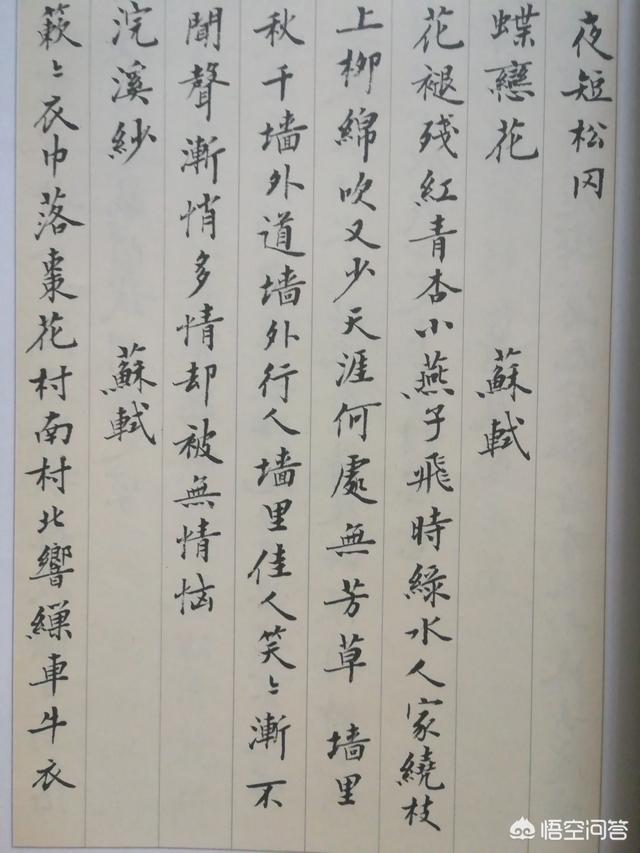 夜短松冈
蝶戀花 蘇軾
花褪殘紅青杏小燕子飛時綠水人家繞枝
上柳綿吹又少天涯何處無芳草 墙里
秋千墙外道墙外行人墙里佳人笑〻漸不
聞聲漸悄多情却被無情恼
浣溪紗 蘇軾
簌〻衣巾落棗花村南村北響繅車牛衣
悟空问答